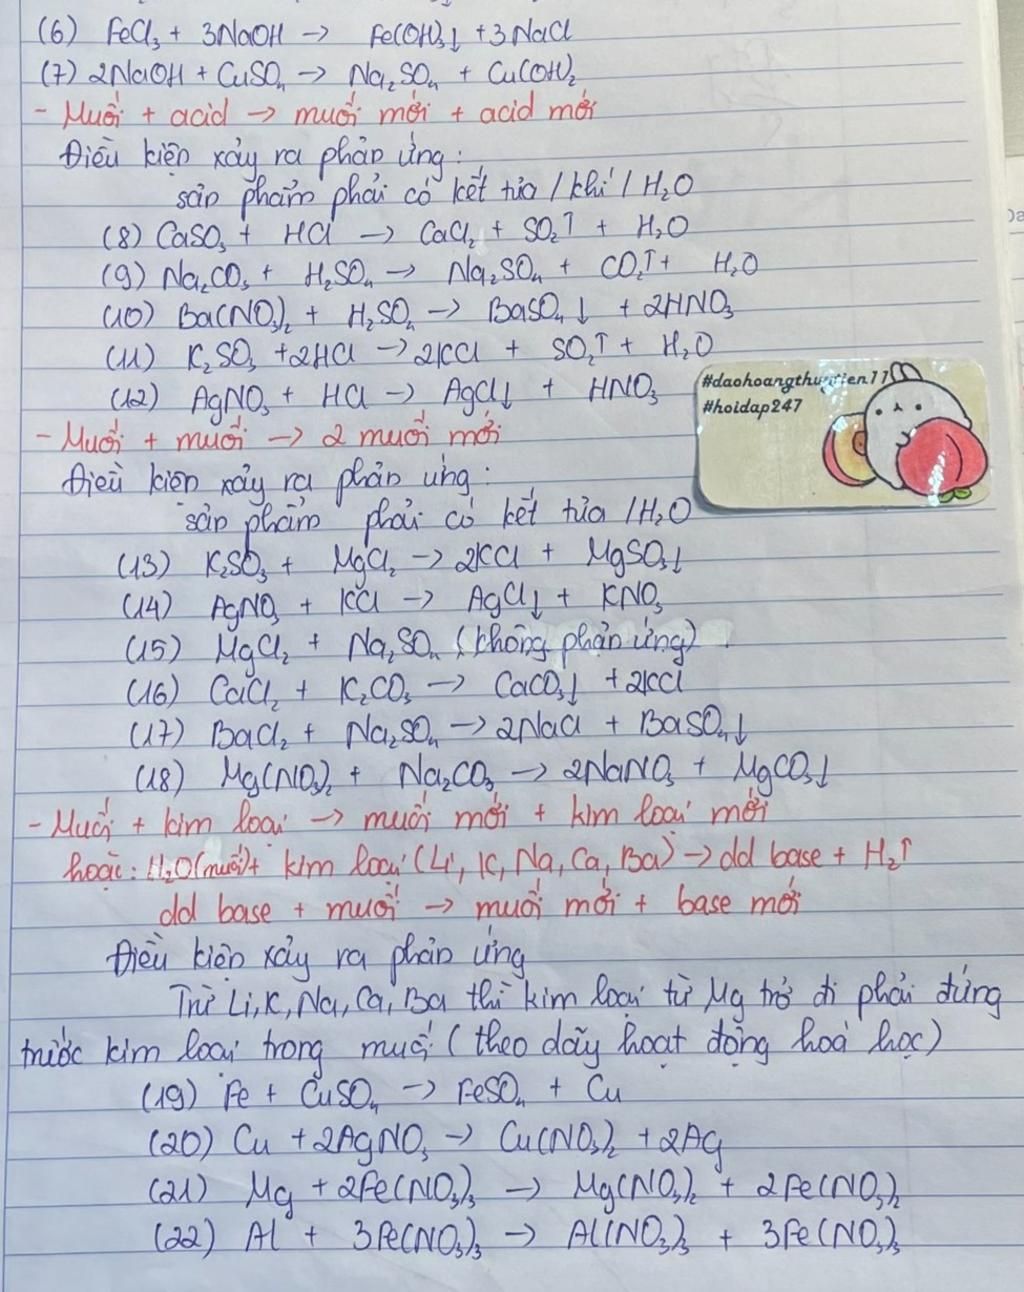 (6) FeCl₃ + 3NaOH → Fe(OH)₃↓ + 3NaCl
(7) 2NaOH + CuSO₄ → Na₂SO₄ + Cu(OH)₂
- Muối + acid → muối mới + acid mới
Điều kiện xảy ra phản ứng:
sản phẩm phải có kết tủa / khí / H₂O
(8) CaSO₃ + HCl → CaCl₂ + SO₂↑ + H₂O
(9) Na₂CO₃ + H₂SO₄ → Na₂SO₄ + CO₂↑ + H₂O
(10) Ba(NO₃)₂ + H₂SO₄ → BaSO₄↓ + 2HNO₃
(11) K₂SO₃ + 2HCl → 2KCl + SO₂↑ + H₂O
(12) AgNO₃ + HCl → AgCl↓ + HNO₃
#hoidap247
- Muối + muối → 2 muối mới
Điều kiện xảy ra phản ứng:
sản phẩm phải có kết tủa / H₂O
(13) K₂SO₃ + MgCl₂ → 2KCl + MgSO₃↓
(14) AgNO₃ + KCl → AgCl↓ + KNO₃
(15) MgCl₂ + Na₂SO₄ (không phản ứng)
(16) CaCl₂ + K₂CO₃ → CaCO₃↓ + 2KCl
(17) BaCl₂ + Na₂SO₄ → 2NaCl + BaSO₄↓
(18) Mg(NO₃)₂ + Na₂CO₃ → 2NaNO₃ + MgCO₃↓
- Muối + kim loại → muối mới + kim loại mới
hoặc: H₂O(muối) + kim loại (Li, K, Na, Ca, Ba) → dd base + H₂↑
dd base + muối → muối mới + base mới
Điều kiện xảy ra phản ứng
Trừ Li, K, Na, Ca, Ba thì kim loại từ Mg trở đi phải đứng
trước kim loại trong muối (theo dãy hoạt động hoá học)
(19) Fe + CuSO₄ → FeSO₄ + Cu
(20) Cu + 2AgNO₃ → Cu(NO₃)₂ + 2Ag
(21) Mg + 2Fe(NO₃)₃ → Mg(NO₃)₂ + 2Fe(NO₃)₂
(22) Al + 3Fe(NO₃)₃ → Al(NO₃)₃ + 3Fe(NO₃)₃